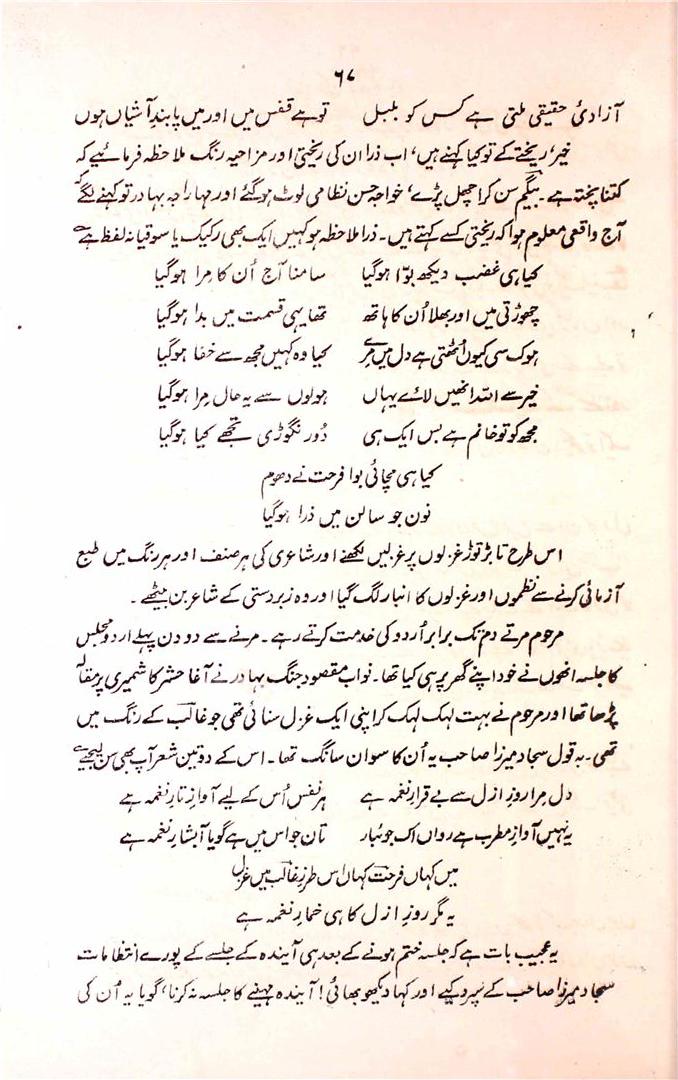 ۶۷
آزادیٔ حقیقی ملتی ہے کس کو بلبل تو ہے قفس میں اور میں پابندِ آشیاں ہوں
خیر، ریختے کے تو کیا کہنے ہیں، اب ذرا ان کی ریختی اور مزاحیہ رنگ ملاحظہ فرمائیے کہ
کتنا پختہ ہے۔ بیگم سن کر اچھل پڑے، خواجہ حسن نظامی لوٹ ہوگئے اور مہاراجہ بہادر تو کہنے لگے کہ
آج واقعی معلوم ہوا کہ ریختی کسے کہتے ہیں۔ ذرا ملاحظہ ہو کہیں ایک بھی رکیک یا سوقیانہ لفظ ہے؟
کیا ہی غضب دیکھ بوّا ہوگیا سامنا آج اُن کا مِرا ہوگیا
چھوڑتی میں اور بھلا اُن کا ہاتھ تھا یہی قسمت میں بدا ہوگیا
ہوک سی کیوں اُٹھتی ہے دل میں مرے کیا وہ کہیں مجھ سے خفا ہوگیا
خیر سے اللہ انھیں لائے یہاں ہولوں سے یہ حال مِرا ہوگیا
مجھ کو تو خانم ہے بس ایک ہی دُور نگوڑی تجھے کیا ہوگیا
کیا ہی مچائی بوا فرحت نے دھوم
نون جو سالن میں ذرا ہوگیا
اس طرح تابڑ توڑ غزلوں پر غزلیں لکھنے اور شاعری کی ہر صنف اور ہر رنگ میں طبع
آزمائی کرنے سے نظموں اور غزلوں کا انبار لگ گیا اور وہ زبردستی کے شاعر بن بیٹھے۔
مرحوم مرتے دم تک برابر اُردو کی خدمت کرتے رہے۔ مرنے سے دو دن پہلے اردو مجلس
کا جلسہ انھوں نے خود اپنے گھر پر ہی کیا تھا۔ نواب مقصود جنگ بہادر نے آغا حشر کاشمیری پر مقالہ
پڑھا تھا اور مرحوم نے بہت لہک لہک کر اپنی ایک غزل سنائی تھی جو غالب کے رنگ میں
تھی۔ بہ قول سجاد میرزا صاحب یہ اُن کا سوان سانگ تھا۔ اس کے دو تین شعر آپ بھی سن لیجیے
دل مرا روزِ ازل سے بے قرارِ نغمہ ہے ہر نفس اُس کے لیے آوازِ تارِ نغمہ ہے
یہ نہیں آوازِ مطرب ہے رواں اک جوئبار تان جو اس میں ہے گویا آبشارِ نغمہ ہے
میں کہاں فرحت کہاں اس طرزِ غالب میں غزل
یہ مگر روزِ ازل کا ہی خمارِ نغمہ ہے
یہ عجیب بات ہے کہ جلسہ ختم ہونے کے بعد ہی آیندہ کے جلسے کے پورے انتظامات
سجاد میرزا صاحب کے سپرد کیے اور کہا دیکھو بھائی! آیندہ مہینے کا جلسہ نہ کرنا، گویا یہ اُن کی